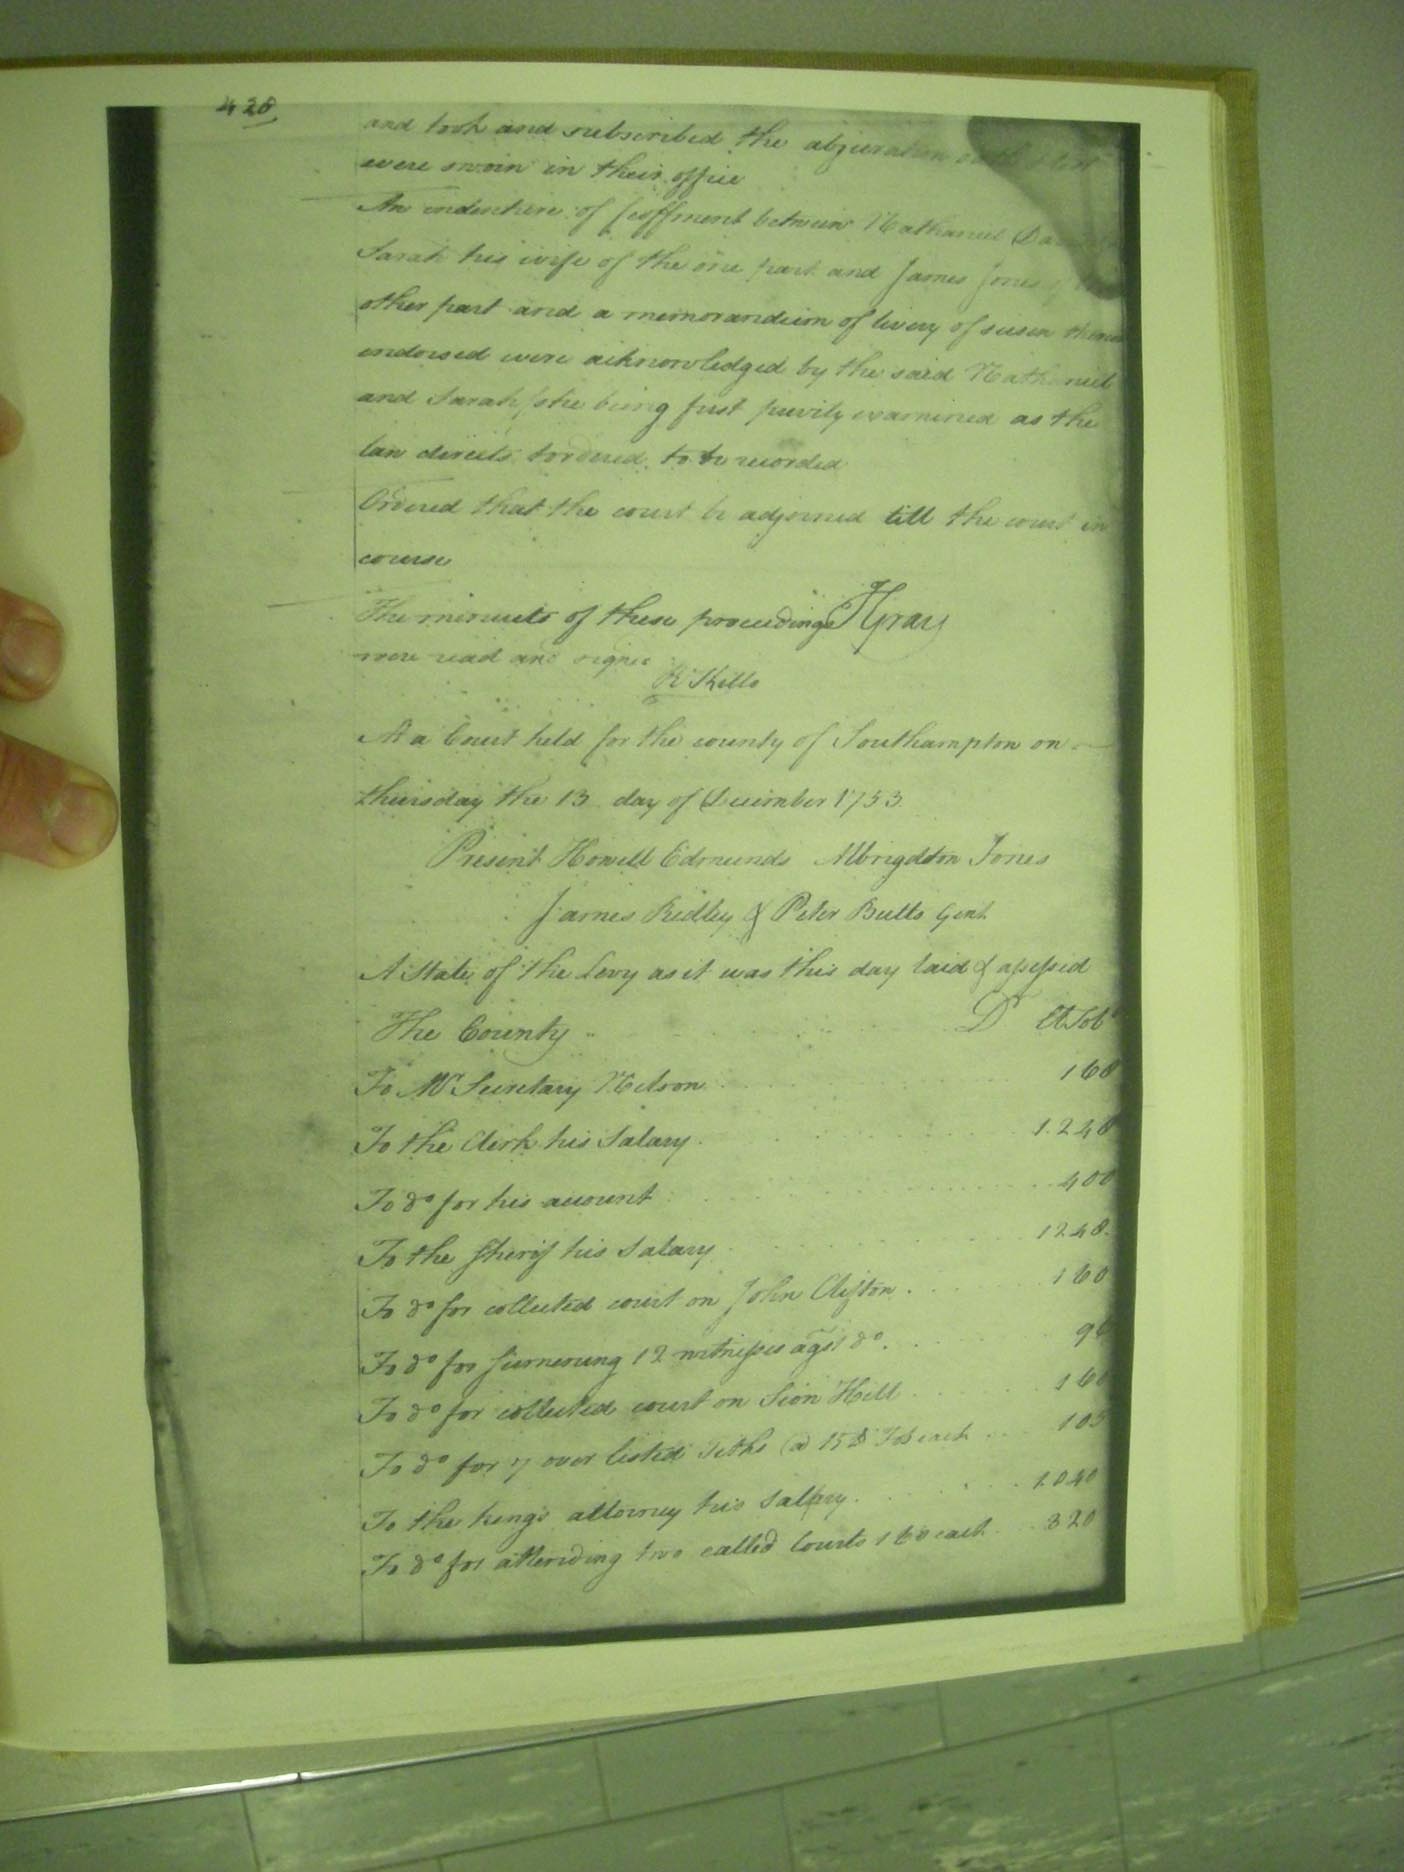 420
and took and subscribed the abjuration oath &
were sworn in their office
An indenture of feoffment between Nathaniel
Sarah his wife of the one part and James Jones of the
other part and a memorandum of livery of seisen thereon
endorsed were acknowledged by the said Nathaniel
and Sarah (she being first privily examined as the
law directs & ordered to be recorded
Ordered that the court be adjorned till the court in
course
The minuets of these proceedings JGray
were read and signed
R Kello
At a Court held for the county of Southampton on
thursday the 13 day of December 1753
Present Howell Edmunds Albrigdton Jones
James Ridley & Peter Butts Gent
A State of the Levy as it was this day laid & assessed
The County Dr Lt Tobo
To Mr Secretary Nelson 160
To the Clerk his Salary 1.248
To do for his account 400
To the Sherif his Salary 1248.
To do for collected court on John Clifton 160
To do for sumening 12 witnesses agst do. 96
To do for collected court on Sion Hill 160
To do for 7 over listed Tiths @ 15 Tob each 105
To the kings attorney his Salary 1040
To do for attending two called Courts 160 each 320